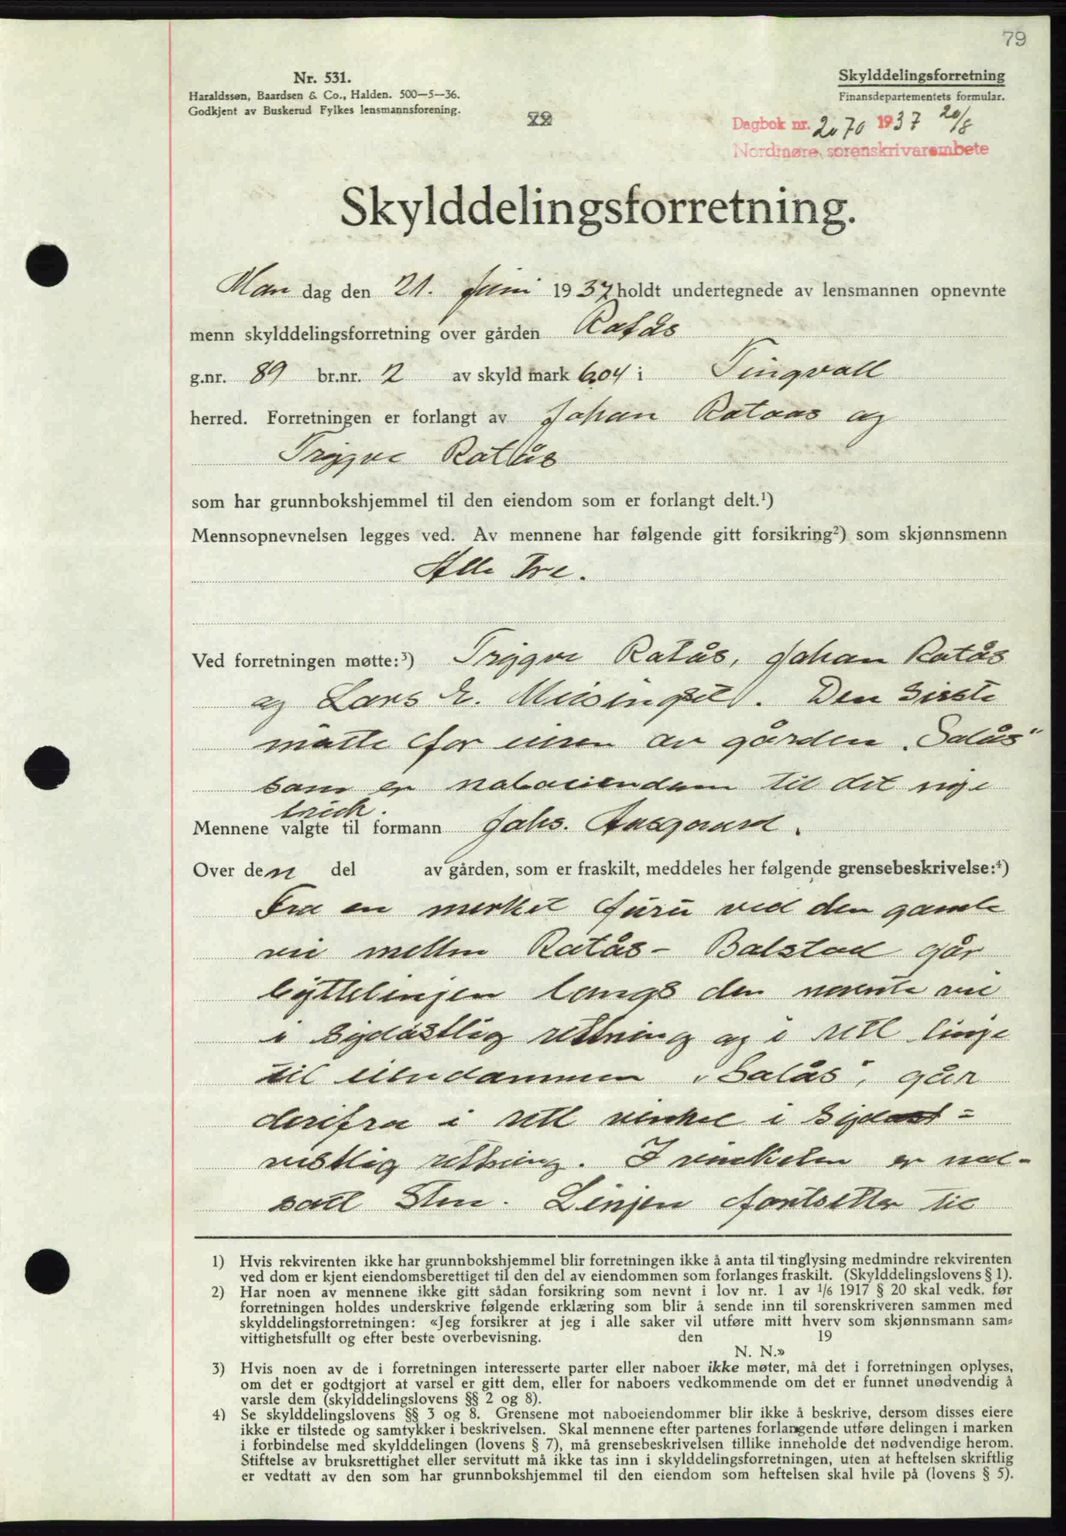 79
Nr. 531.
Haraldssøn, Baardsen & Co., Halden. 500—5—36.
Godkjent av Buskerud Fylkes lensmannsforening.
72
Skylddelingsforretning
Finansdepartementets formular.
Dagbok nr. 2070 1937 20/8
Nordmøre sorenskrivarembete
Skylddelingsforretning.
Man dag den 21. juni 1937 holdt undertegnede av lensmannen opnevnte
menn skylddelingsforretning over gården Ratås
g.nr. 89 br.nr. 2 av skyld mark 6.04 i Tingvoll
herred. Forretningen er forlangt av Johan Rataas og
Trygve Ratås
som har grunnbokshjemmel til den eiendom som er forlangt delt.¹)
Mennsopnevnelsen legges ved. Av mennene har følgende gitt forsikring²) som skjønnsmenn
Alle tre.
Ved forretningen møtte:³) Trygve Ratås, Johan Ratås
og Lars E. Meisingset. Den siste
møtte for eieren av gården „Salås"
som er naboeiendom til det nye
bruk.
Mennene valgte til formann Johs. Aasgaard.
Over den del av gården, som er fraskilt, meddeles her følgende grensebeskrivelse:⁴)
Fra en merket furu ved den gamle
vei mellem Ratås - Balstad går
byttelinjen langs den nevnte vei
i sydøstlig retning og i rett linje
til eiendommen „Salås", går
derifra i rett vinkel i syd=
vestlig retning. I vinkelen er ned-
satt sten. Linjen fortsetter til
1) Hvis rekvirenten ikke har grunnbokshjemmel blir forretningen ikke å anta til tinglysing medmindre rekvirenten
ved dom er kjent eiendomsberettiget til den del av eiendommen som forlanges fraskilt. (Skylddelingslovens § 1).
2) Har noen av mennene ikke gitt sådan forsikring som nevnt i lov nr. 1 av 1/6 1917 § 20 skal vedk. før
forretningen holdes underskrive følgende erklæring som blir å sende inn til sorenskriveren sammen med
skylddelingsforretningen: «Jeg forsikrer at jeg i alle saker vil utføre mitt hverv som skjønnsmann sam-
vittighetsfullt og efter beste overbevisning. den 19
N. N.»
3) Hvis noen av de i forretningen interesserte parter eller naboer ikke møter, må det i forretningen oplyses,
om det er godtgjort at varsel er gitt dem, eller for naboers vedkommende om det er funnet unødvendig å
varsle dem (skylddelingslovens §§ 2 og 8).
4) Se skylddelingslovens §§ 3 og 8. Grensene mot naboeiendommer blir ikke å beskrive, dersom disses eiere
ikke er tilstede og samtykker i beskrivelsen. Skal mennene efter partenes forlangende utføre delingen i marken
i forbindelse med skylddelingen (lovens § 7), må grensebeskrivelsen tillike inneholde det nødvendige herom.
Stiftelse av bruksrettighet eller servitutt må ikke tas inn i skylddelingsforretningen, uten at heftelsen skriftlig
er vedtatt av den som har grunnbokshjemmel til den eiendom som heftelsen skal hvile på (lovens § 5).